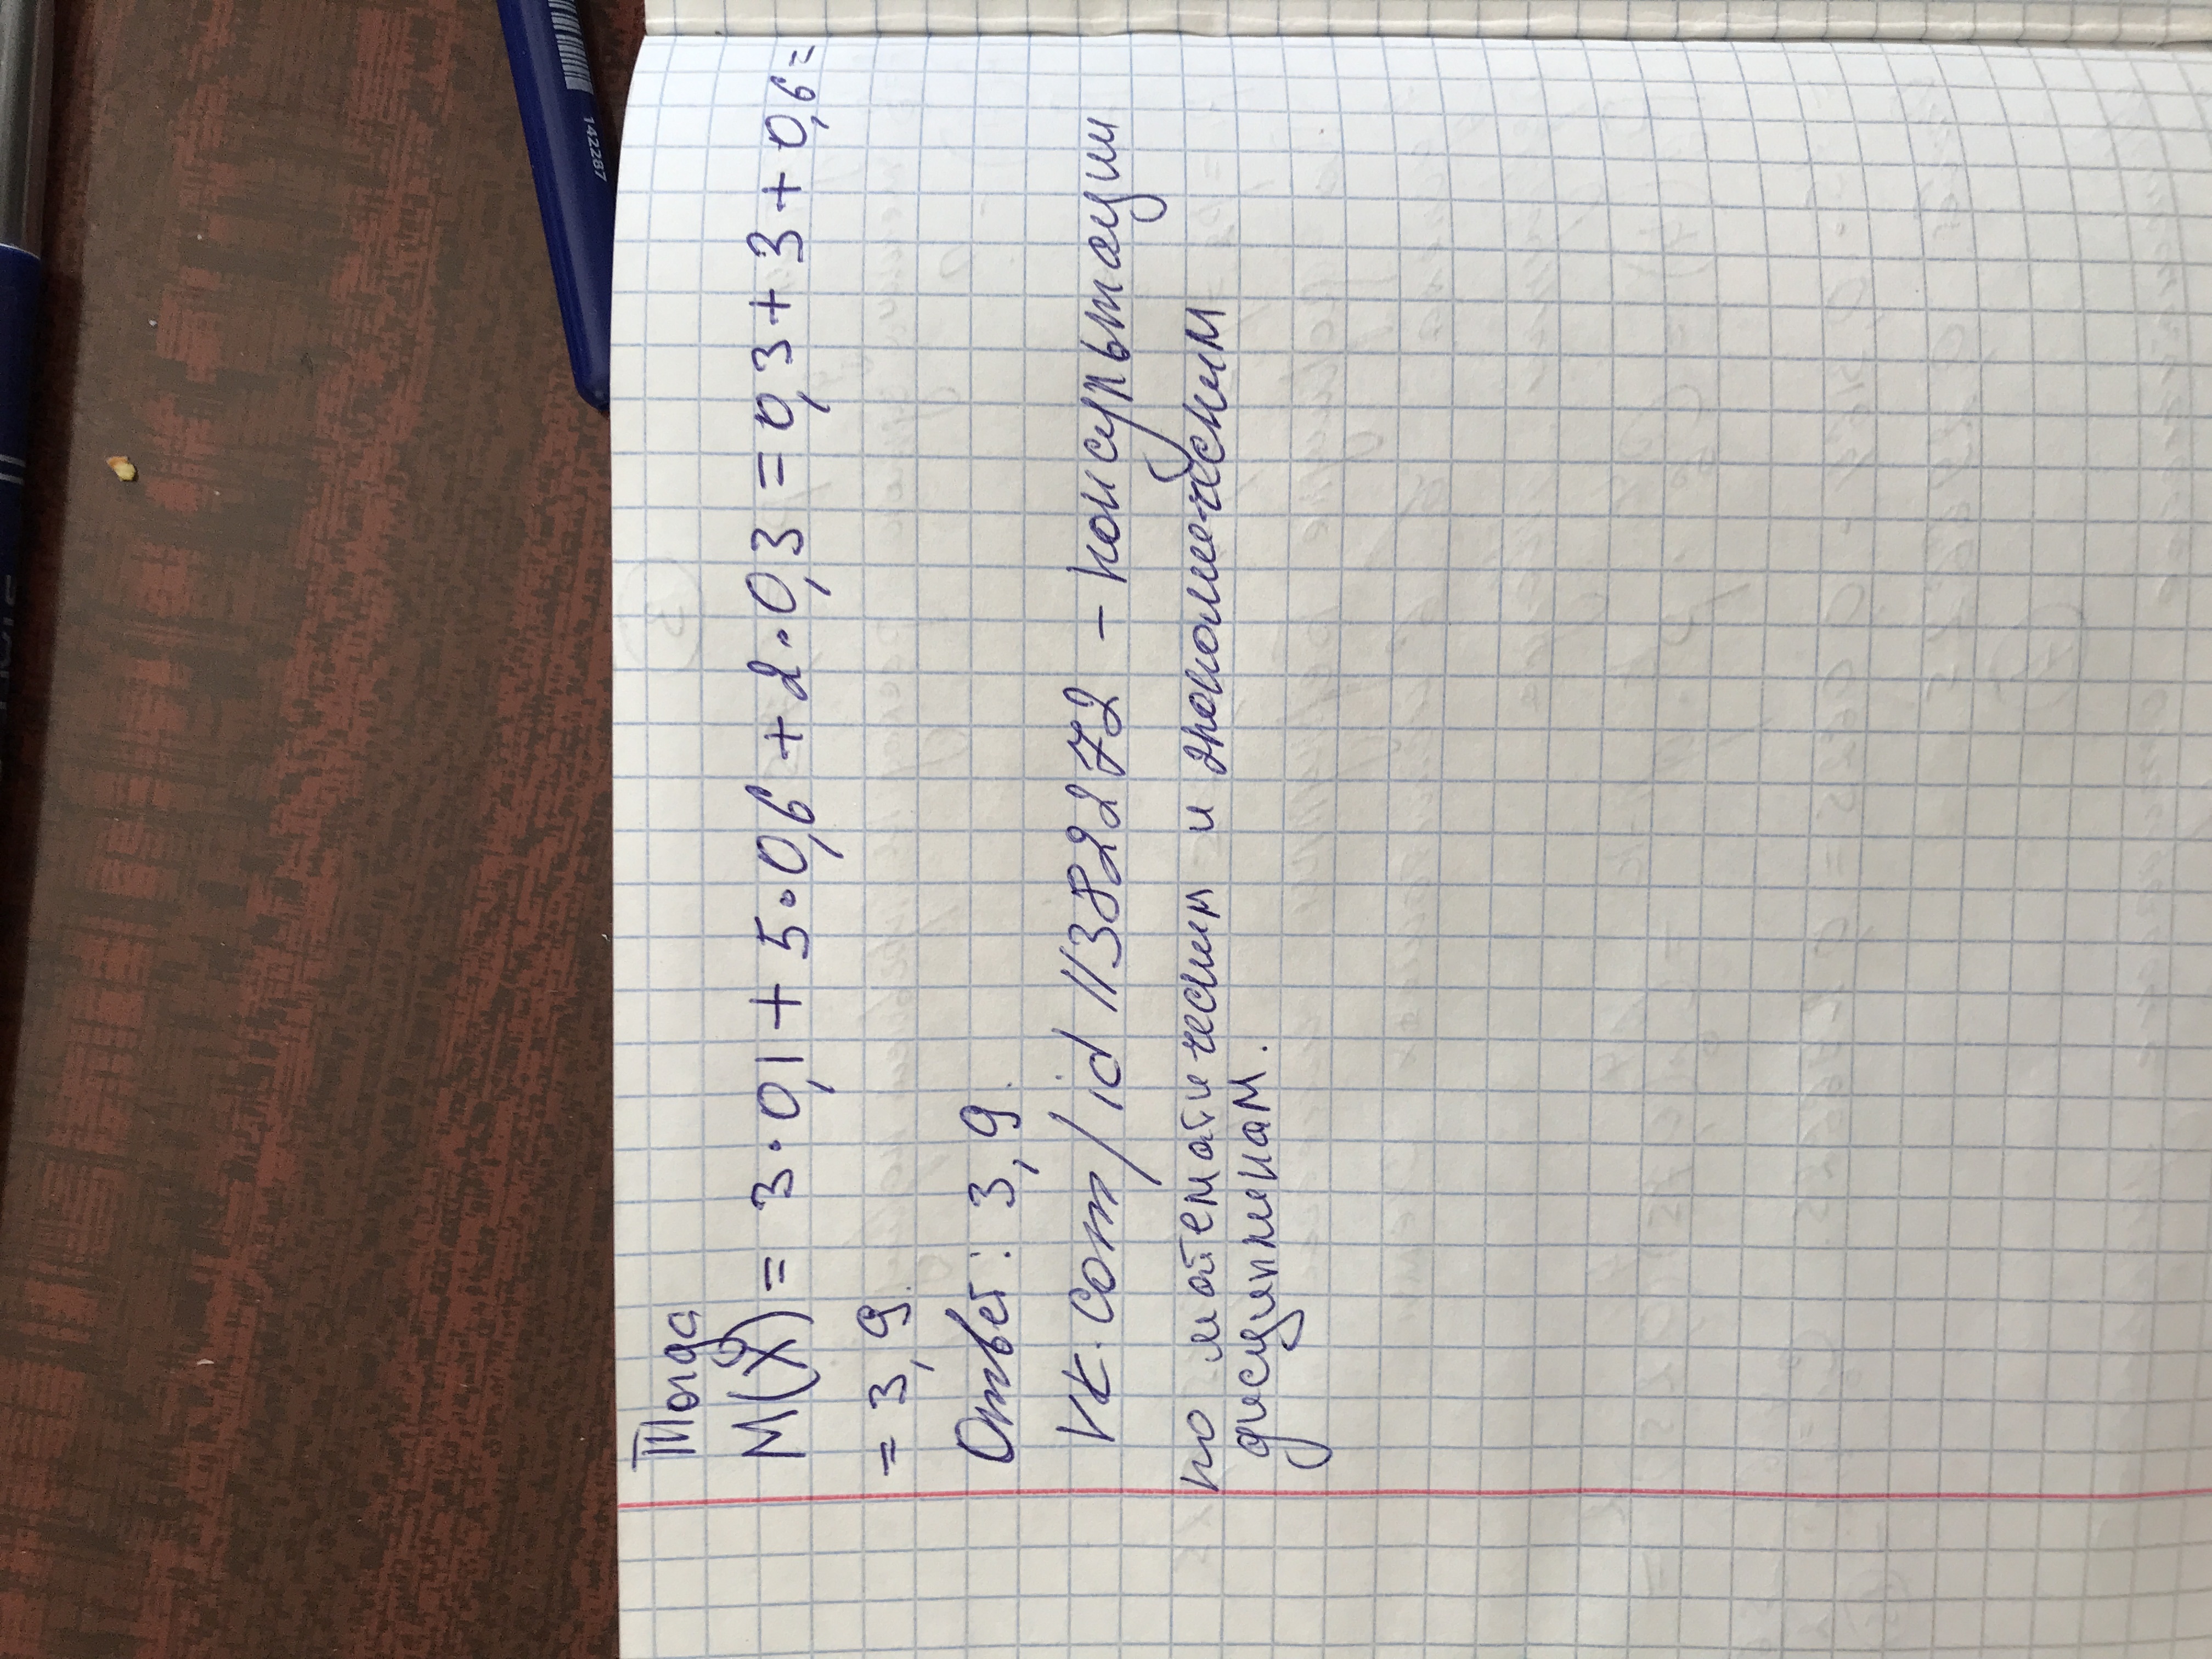 Тогда
M(X) = 3·0,1 + 5·0,6 + 2·0,3 = 0,3 + 3 + 0,6 =
= 3,9.
Ответ: 3,9.
vk.com/id11382272 – консультации
по математическим и экономическим
дисциплинам.
142287